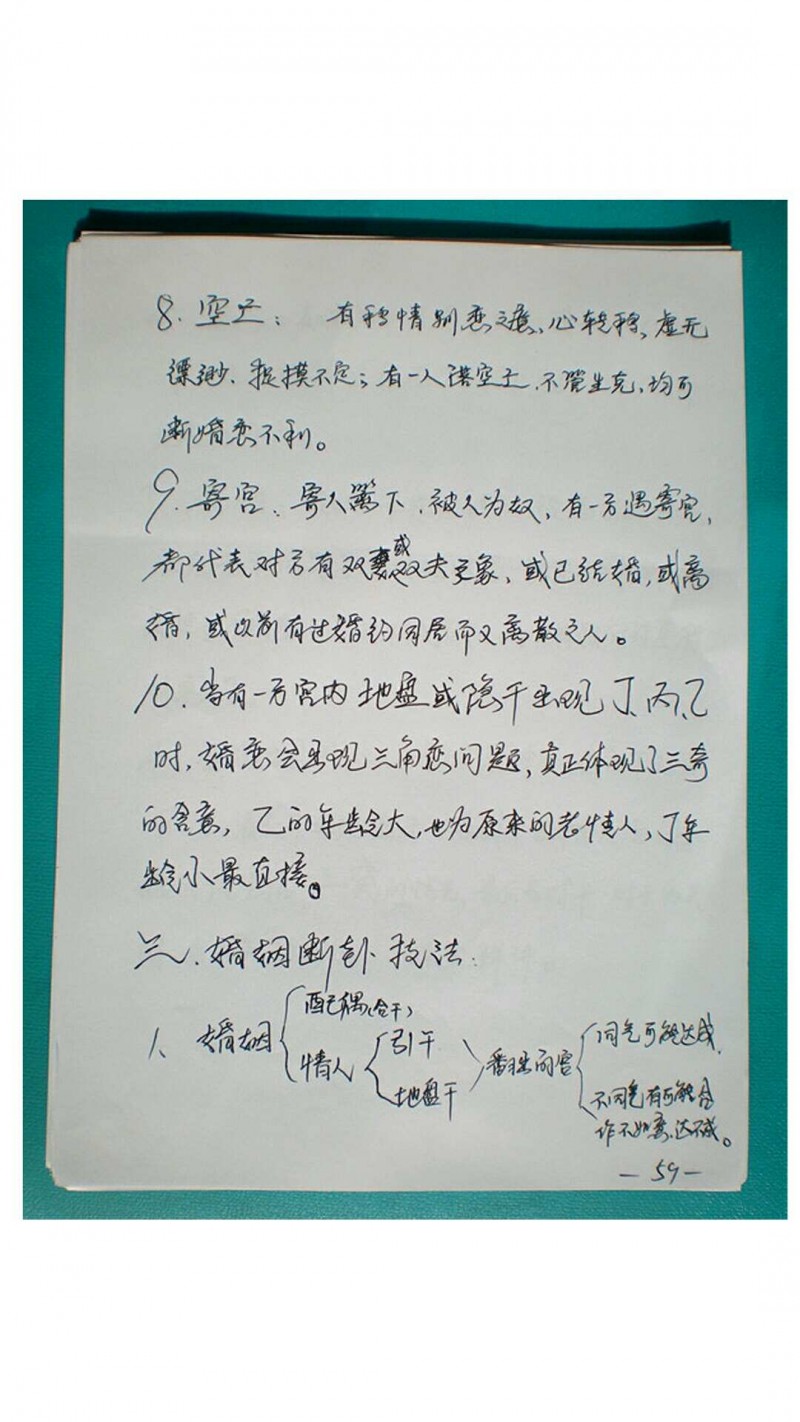 8. 空亡： 有移情别恋之意、心转移、虚无
漂渺、捉摸不定；有一人落空亡，不管生克，均可
断婚恋不利。
9. 寄宫、寄人篱下，被人为奴，有一方遇寄宫，
都代表对方有双妻或双夫之象，或已结婚，或离
婚，或以前有过婚约同居而又离散之人。
10. 当有一方宫内地盘或隐干出现丁、丙、乙
时，婚恋会出现三角恋问题，真正体现了三奇
的含意，乙的年龄大，也为原来的老情人，丁年
龄小最直接。
三、婚姻断卦技法：
1、婚姻
配偶（合干）
情人
引干
地盘干
落的宫
同气可能达成，
不同气有可能合
作不如意，达不成。
—59—